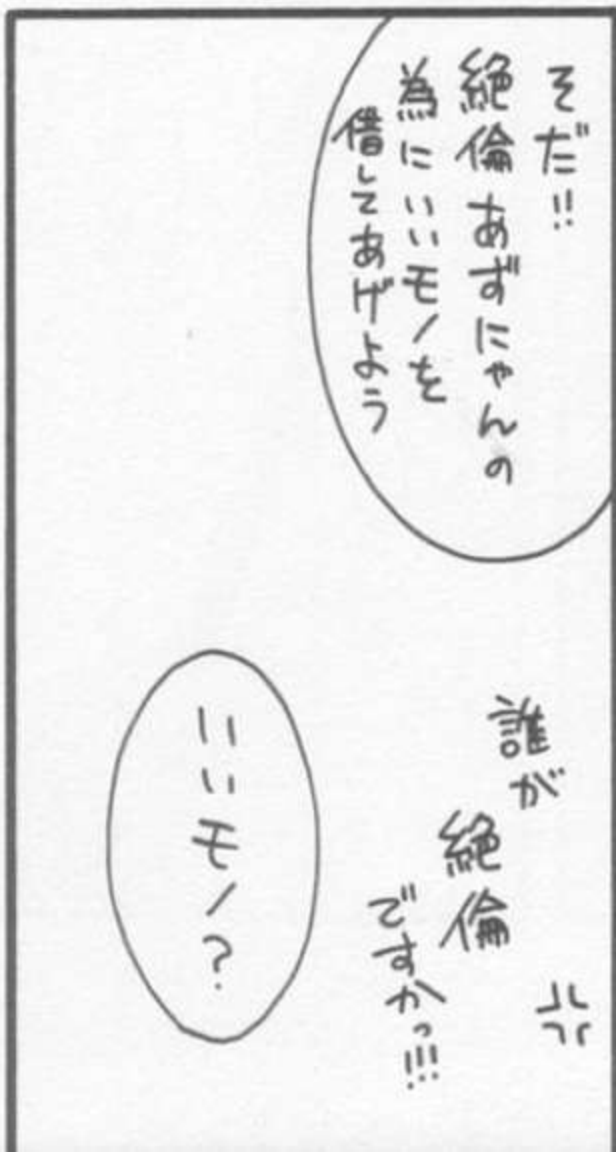 そだ!!
絶倫あずにゃんの
為にいいモノを
借してあげよう
誰が
絶倫
ですかっ!!!
いいモノ?